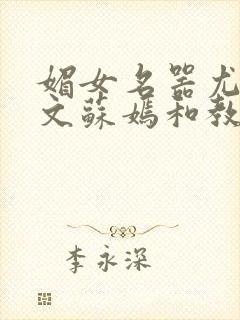 媚女名器尤
文蘇媽和教
李永深